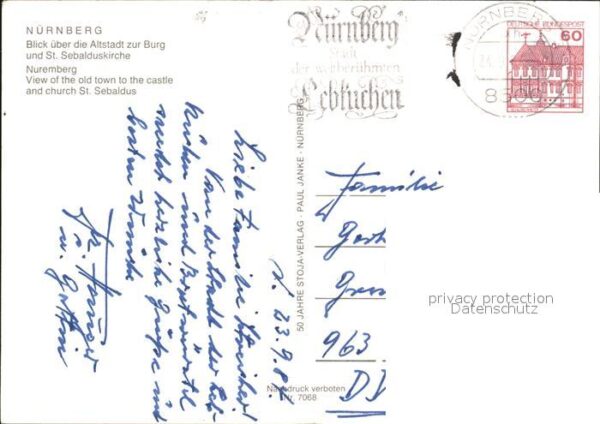 NÜRNBERG
Blick über die Altstadt zur Burg
und St. Sebalduskirche
Nuremberg
View of the old town to the castle
and church St. Sebaldus
Nürnberg
Stadt
der weltberühmten
Lebkuchen
NÜRNBERG
DEUTSCHE BUNDESPOST
60
50 JAHRE STOJA-VERLAG · PAUL JANKE · NÜRNBERG
N. 23.9.84
Liebe Familie
Von der Stadt der Leb-
kuchen und Bratwürstel
sendet herzliche Grüße und
besten Wünsche
u. Gattin
Familie
963
privacy protection
Datenschutz
Nachdruck verboten
Nr. 7068